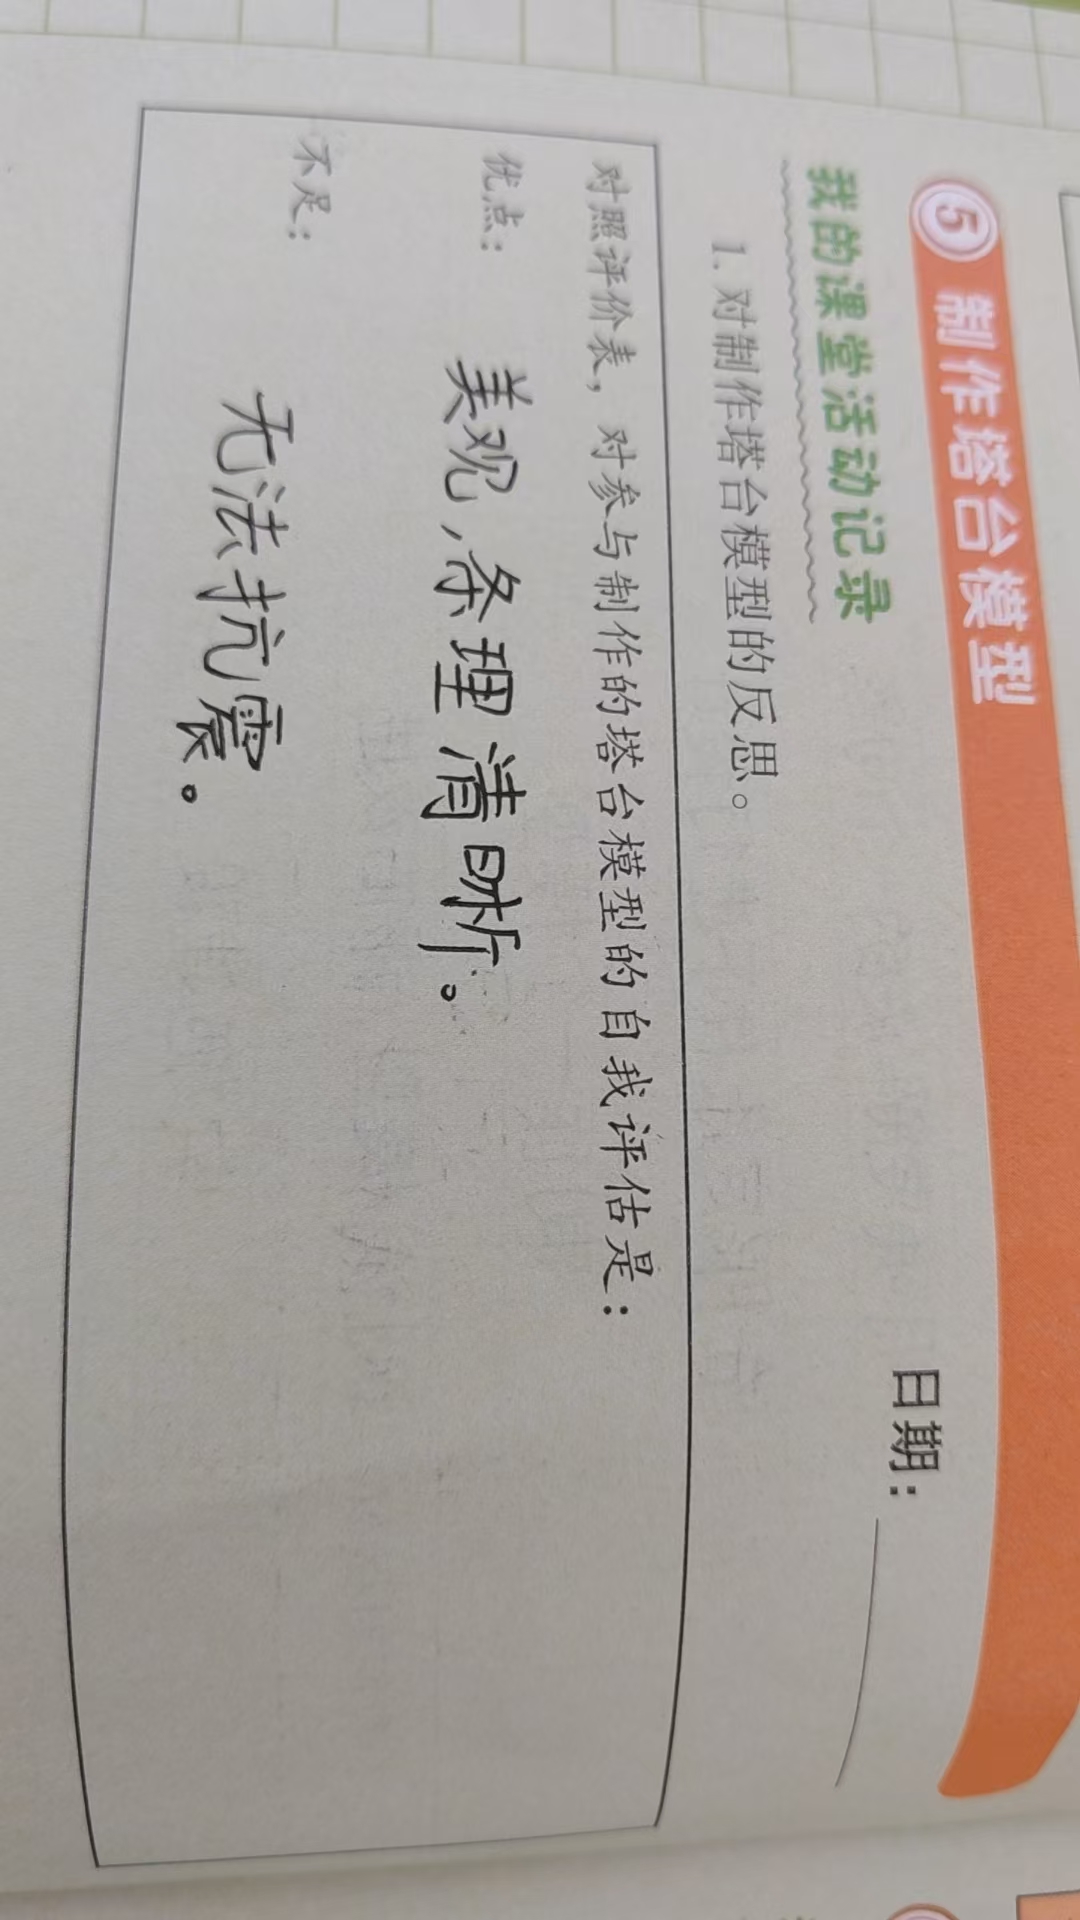 5 制作塔台模型
我的课堂活动记录
日期：
1. 对制作塔台模型的反思。
对照评价表，对参与制作的塔台模型的自我评估是：
优点：
美观，条理清晰。
不足：
无法抗震。